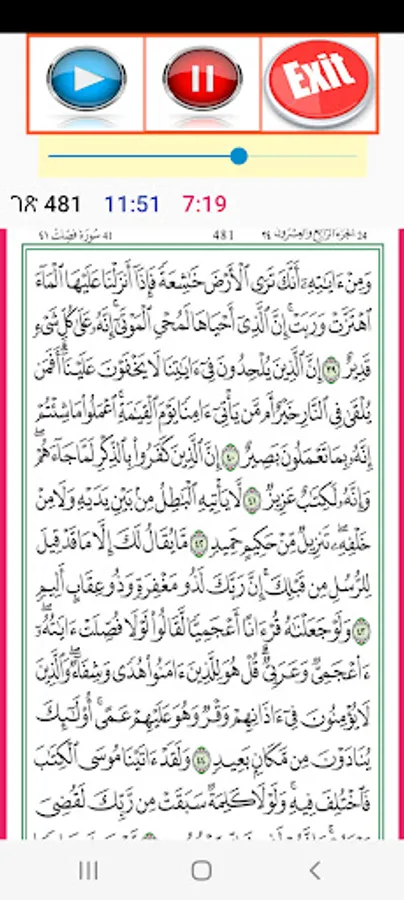 Exit
ገጽ 481 11:51 7:19
41 سُورَة فُصِّلَت ٤١ 481 الجزء الرابع والعشرون ٢٤ 24
وَمِنْ ءَايَٰتِهِۦٓ أَنَّكَ تَرَى ٱلْأَرْضَ خَٰشِعَةً فَإِذَآ أَنزَلْنَا عَلَيْهَا ٱلْمَآءَ
ٱهْتَزَّتْ وَرَبَتْ ۚ إِنَّ ٱلَّذِىٓ أَحْيَاهَا لَمُحْىِ ٱلْمَوْتَىٰٓ ۚ إِنَّهُۥ عَلَىٰ كُلِّ شَىْءٍ
قَدِيرٌ ٣٩ إِنَّ ٱلَّذِينَ يُلْحِدُونَ فِىٓ ءَايَٰتِنَا لَا يَخْفَوْنَ عَلَيْنَآ ۗ أَفَمَن
يُلْقَىٰ فِى ٱلنَّارِ خَيْرٌ أَم مَّن يَأْتِىٓ ءَامِنًا يَوْمَ ٱلْقِيَٰمَةِ ۚ ٱعْمَلُوا۟ مَا شِئْتُمْ ۖ
إِنَّهُۥ بِمَا تَعْمَلُونَ بَصِيرٌ ٤٠ إِنَّ ٱلَّذِينَ كَفَرُوا۟ بِٱلذِّكْرِ لَمَّا جَآءَهُمْ ۖ
وَإِنَّهُۥ لَكِتَٰبٌ عَزِيزٌ ٤١ لَّا يَأْتِيهِ ٱلْبَٰطِلُ مِنۢ بَيْنِ يَدَيْهِ وَلَا مِنْ
خَلْفِهِۦ ۖ تَنزِيلٌ مِّنْ حَكِيمٍ حَمِيدٍ ٤٢ مَّا يُقَالُ لَكَ إِلَّا مَا قَدْ قِيلَ
لِلرُّسُلِ مِن قَبْلِكَ ۚ إِنَّ رَبَّكَ لَذُو مَغْفِرَةٍ وَذُو عِقَابٍ أَلِيمٍ
٤٣ وَلَوْ جَعَلْنَٰهُ قُرْءَانًا أَعْجَمِيًّا لَّقَالُوا۟ لَوْلَا فُصِّلَتْ ءَايَٰتُهُۥٓ ۖ
ءَا۬عْجَمِىٌّ وَعَرَبِىٌّ ۗ قُلْ هُوَ لِلَّذِينَ ءَامَنُوا۟ هُدًى وَشِفَآءٌ ۖ وَٱلَّذِينَ
لَا يُؤْمِنُونَ فِىٓ ءَاذَانِهِمْ وَقْرٌ وَهُوَ عَلَيْهِمْ عَمًى ۚ أُو۟لَٰٓئِكَ
يُنَادَوْنَ مِن مَّكَانٍۭ بَعِيدٍ ٤٤ وَلَقَدْ ءَاتَيْنَا مُوسَى ٱلْكِتَٰبَ
فَٱخْتُلِفَ فِيهِ ۗ وَلَوْلَا كَلِمَةٌ سَبَقَتْ مِن رَّبِّكَ لَقُضِىَ